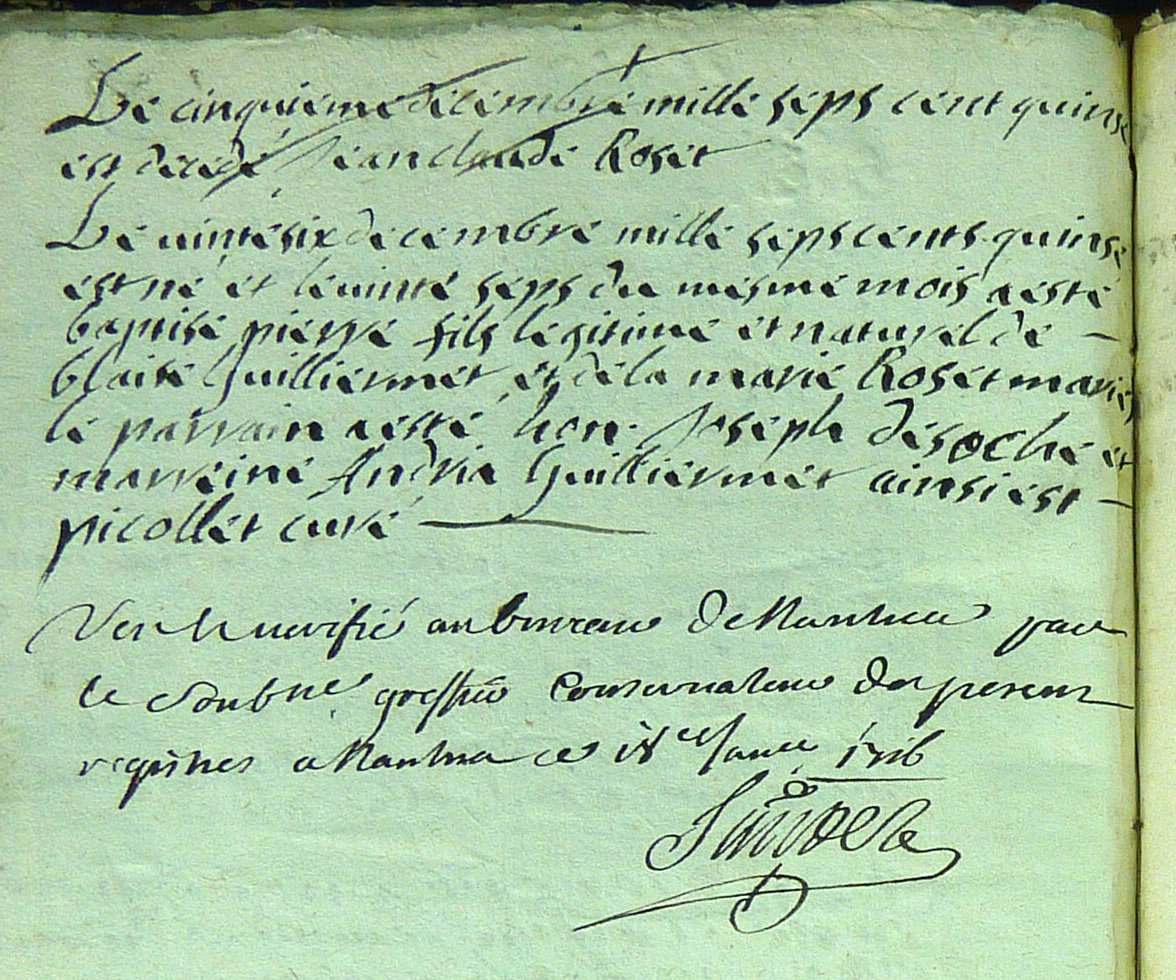 Le cinquiéme décembre mille séps cént quinse
ést décédé Jéan claude Rosét
Lé vinté six decembré millé séps cénts quinsé
ést né ét lé vinté séps du mésmé mois a ésté
baptisé pierré fils légitimé ét naturél dé –
blaisé Guilliérmét ét dé la marié Rosét mariés
lé parrain a ésté hon. Joséph désoché ét
marréiné Andria Guilliérmét ainsi ést –
picollét curé
Veu et verifié au bureau de Nantua par
le Soubné greffier Conservateur des presens
registres a Nantua ce Janv. 1716